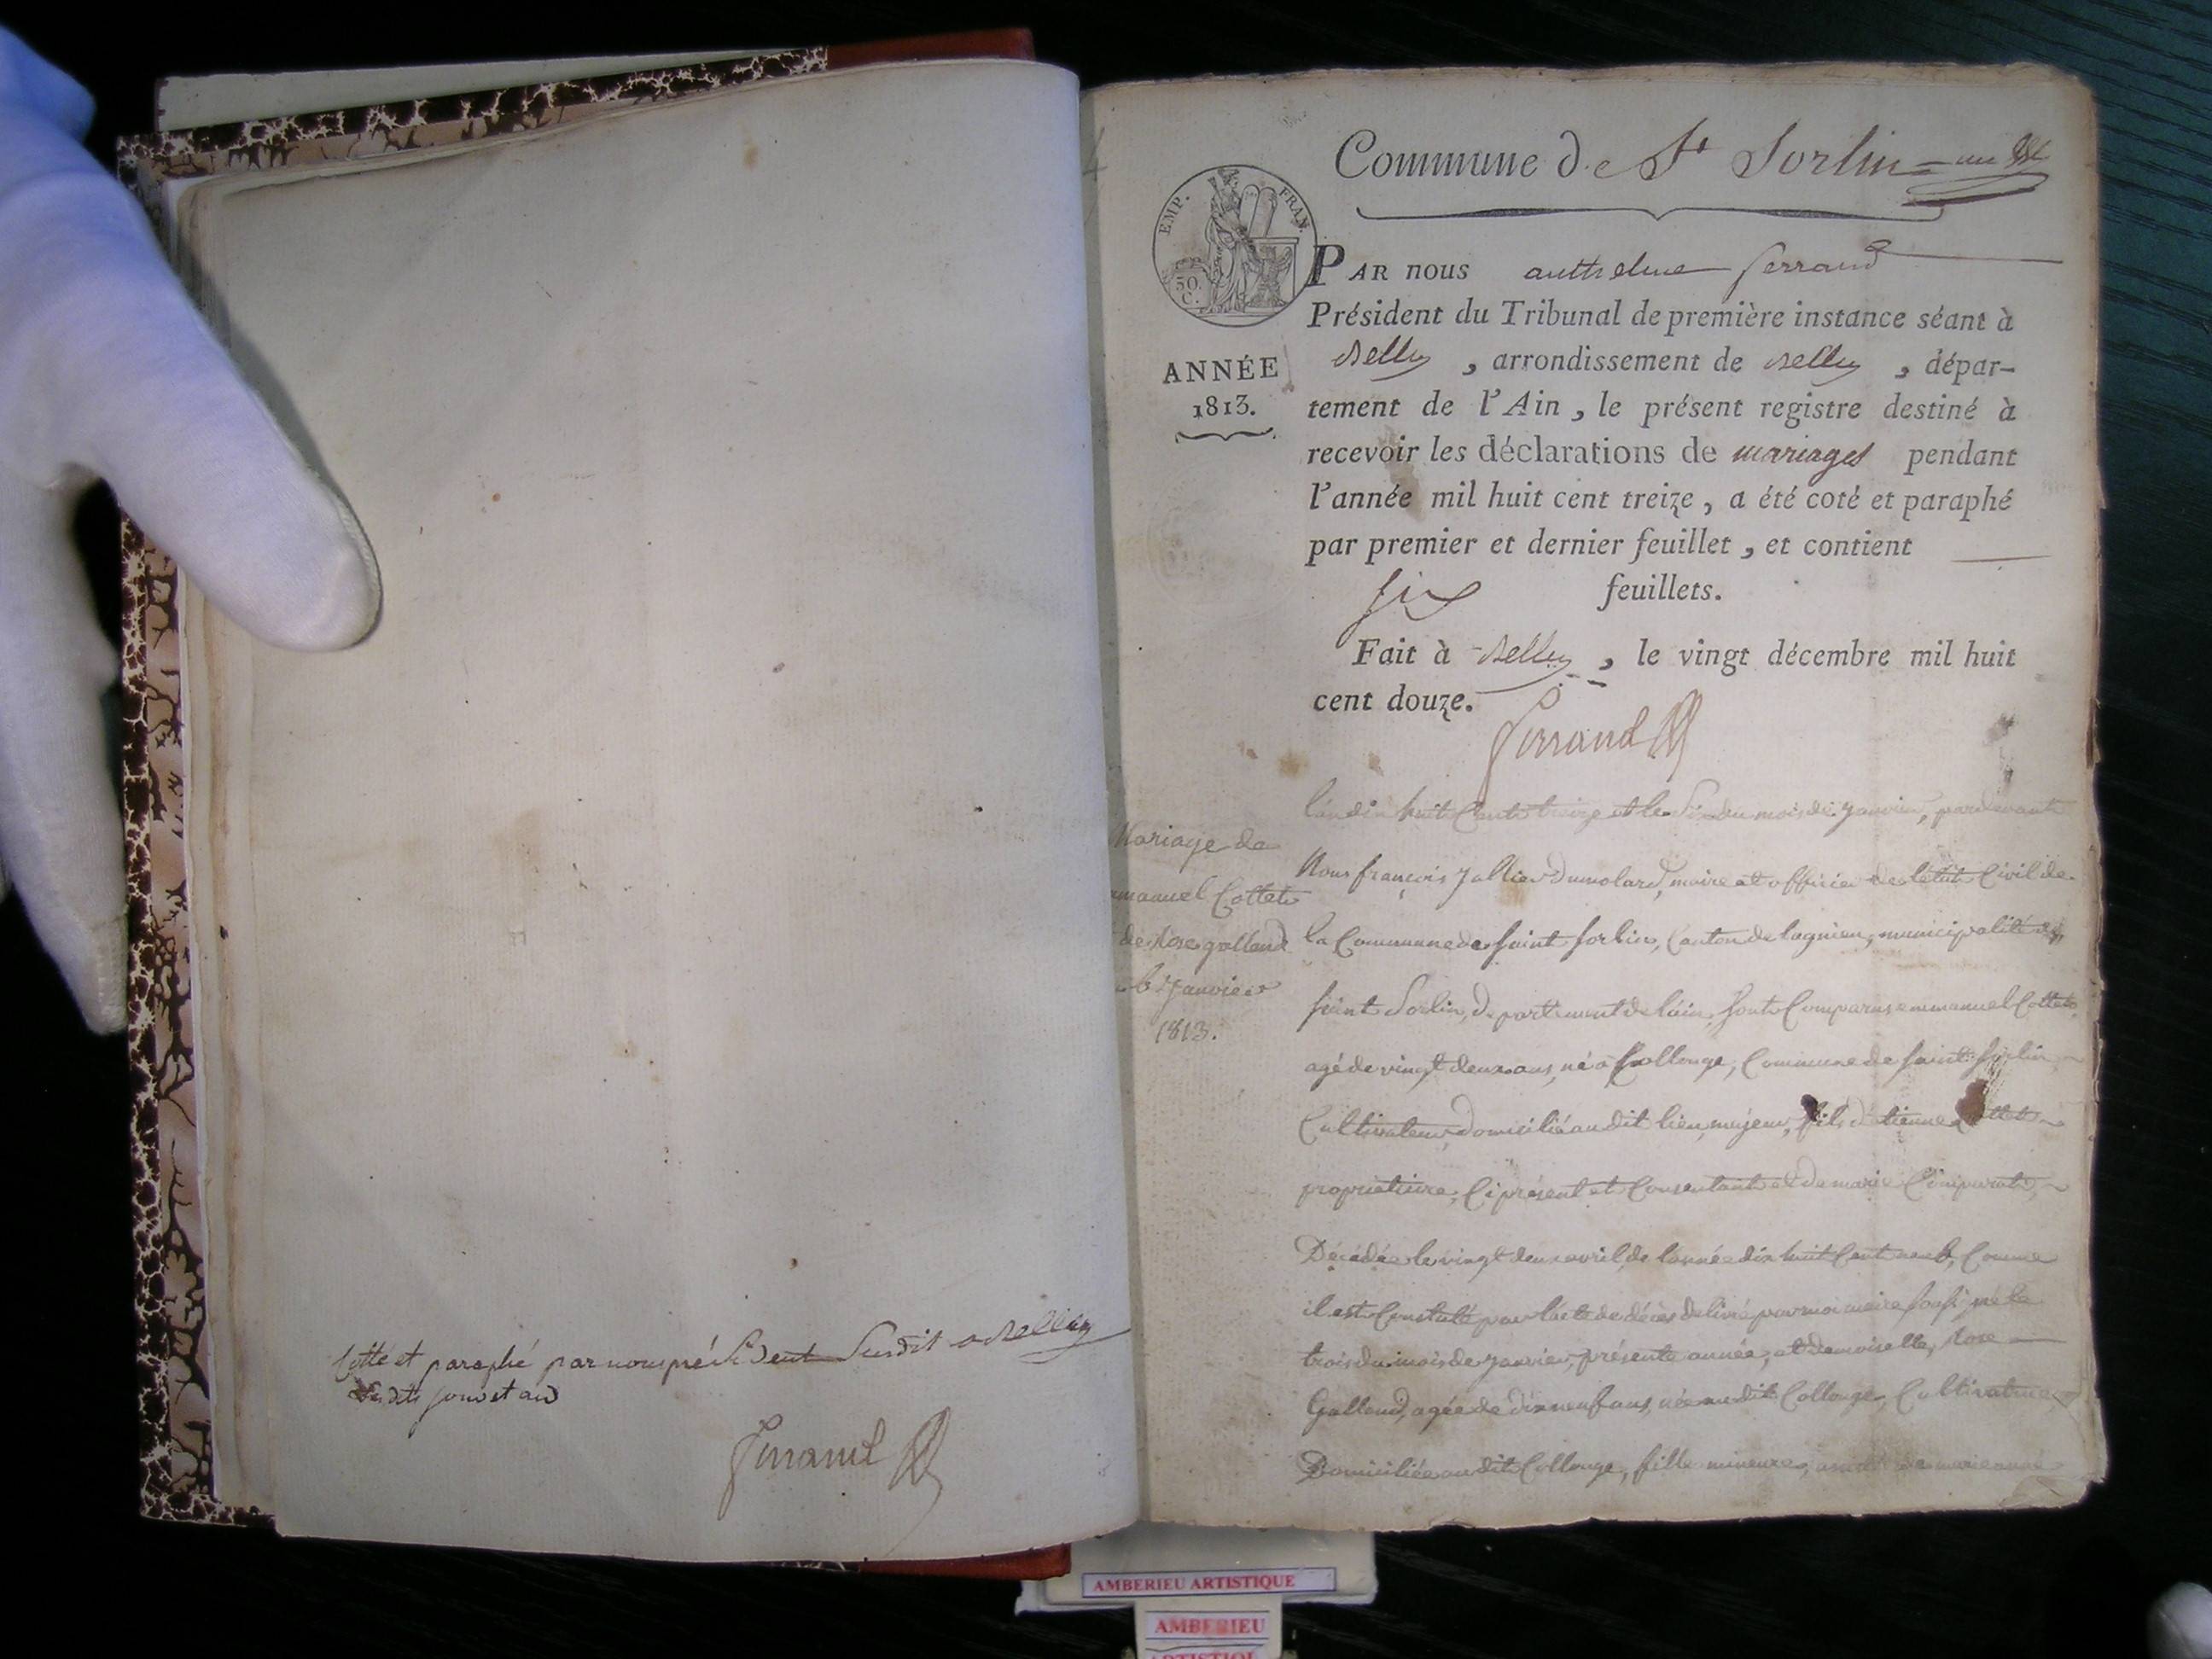 Cotté et paraphé par nous président Susdit a Belley
Susdits jour et an
Ferrand
Commune de St Sorlin
EMP. FRAN.
50.
C.
ANNÉE
1813.
PAR nous anthelme ferrand
Président du Tribunal de première instance séant à
Belley, arrondissement de Belley, dépar-
tement de l'Ain, le présent registre destiné à
recevoir les déclarations de mariages pendant
l'année mil huit cent treize, a été coté et paraphé
par premier et dernier feuillet, et contient
six feuillets.
Fait à Belley, le vingt décembre mil huit
cent douze.
Ferrand
Mariage de
mmanuel Cottet
de Rose galland
6 Janvier
1813.
L'an dix huit Cent treize et le Six du mois de Janvier, pardevant
Nous françois Jullier Dumolard, maire et officier de l'état Civil de
la Commune de Saint Sorlin, Canton de lagnieu, municipalité de
Saint Sorlin, département de l'ain, Sont Comparus emmanuel Cottet
agé de vingt deux ans, né a Collonge, Commune de Saint Sorlin
Cultivateur, domicilié au dit lieu, majeur, fils d'étienne Cottet
propriétaire, Ci présent et Consentant et de marie
Décédée le vingt deux avril de l'année dix huit Cent neuf, Comme
il est Constaté par l'acte de décès délivré par moi maire Soussigné le
trois du mois de Janvier, présente année, et demoiselle, Rose
Galland, agée de dix neuf ans, née au dit Collonge, Cultivatrice
Domiciliée au dit Collonge, fille mineure, de marie anne